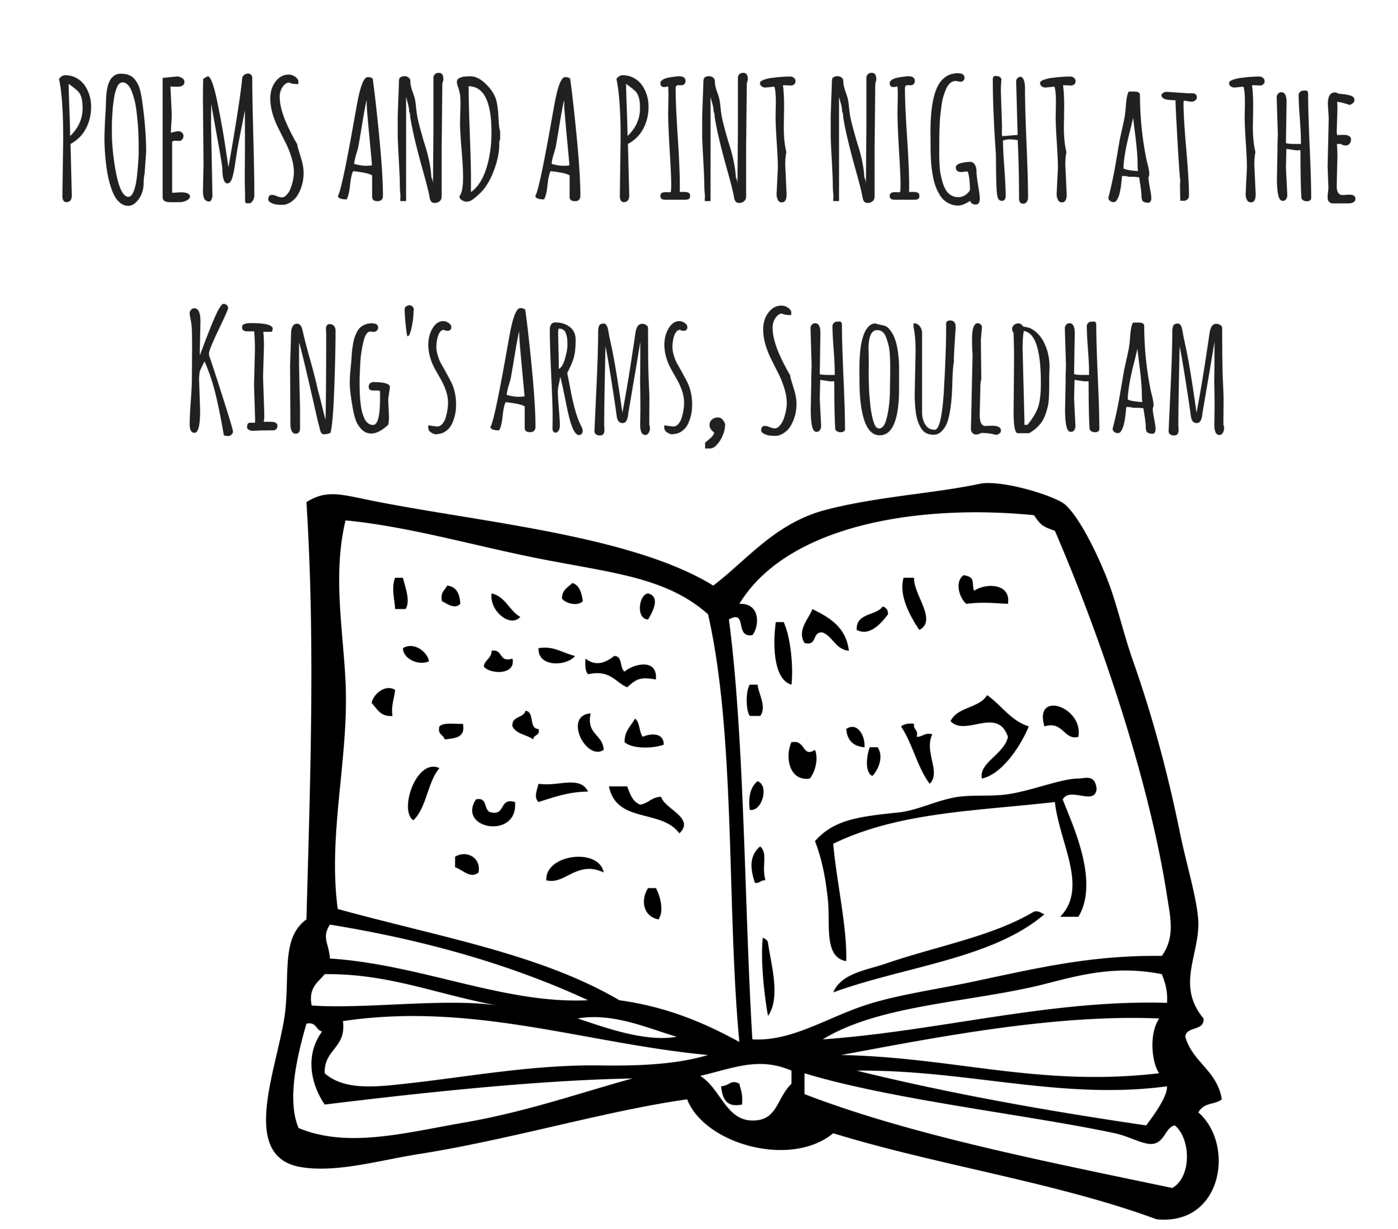 POEMS AND A PINT NIGHT AT THE
KING'S ARMS, SHOULDHAM